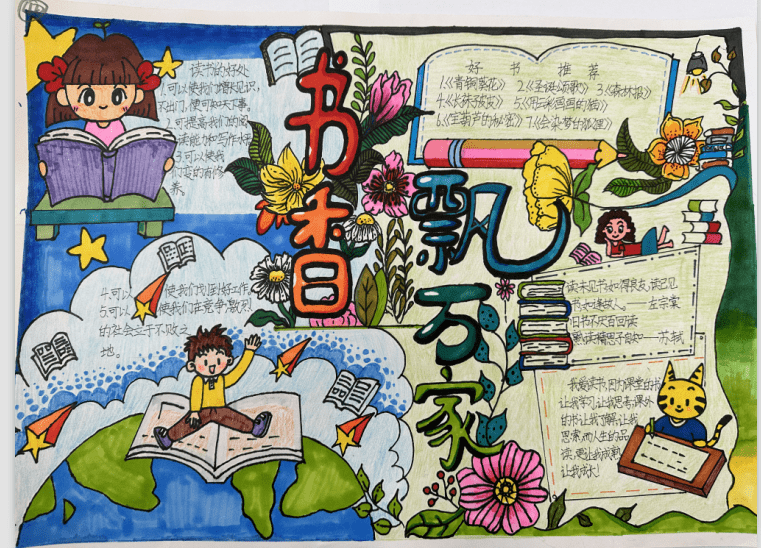 书香
飘万家
读书的好处
1.可以使我们增长见识,
不出门,便可知天下事。
2.可提高我们的阅
读能力和写作水平
3.可以使我
们变的有修
养。
4.可以使我们找到好工作
5.可以使我们在竞争激烈
的社会立于不败之
地。
好书推荐
1.《青铜葵花》 2.《圣诞颂歌》 3.《森林报》
4.《长袜子皮皮》 5.《用云彩
6.《宝葫芦的秘密》 7.《会染梦的狐狸》
读未见书,如得良友,读已见
书,如逢故人。——左宗棠
旧书不厌百回读
熟读精思子自知——苏轼
我爱读书,因为课堂的书
让我学习,让我思考,课外
的书让我了解,让我
思索,而人生的品
读,更让我成熟
让我成长!